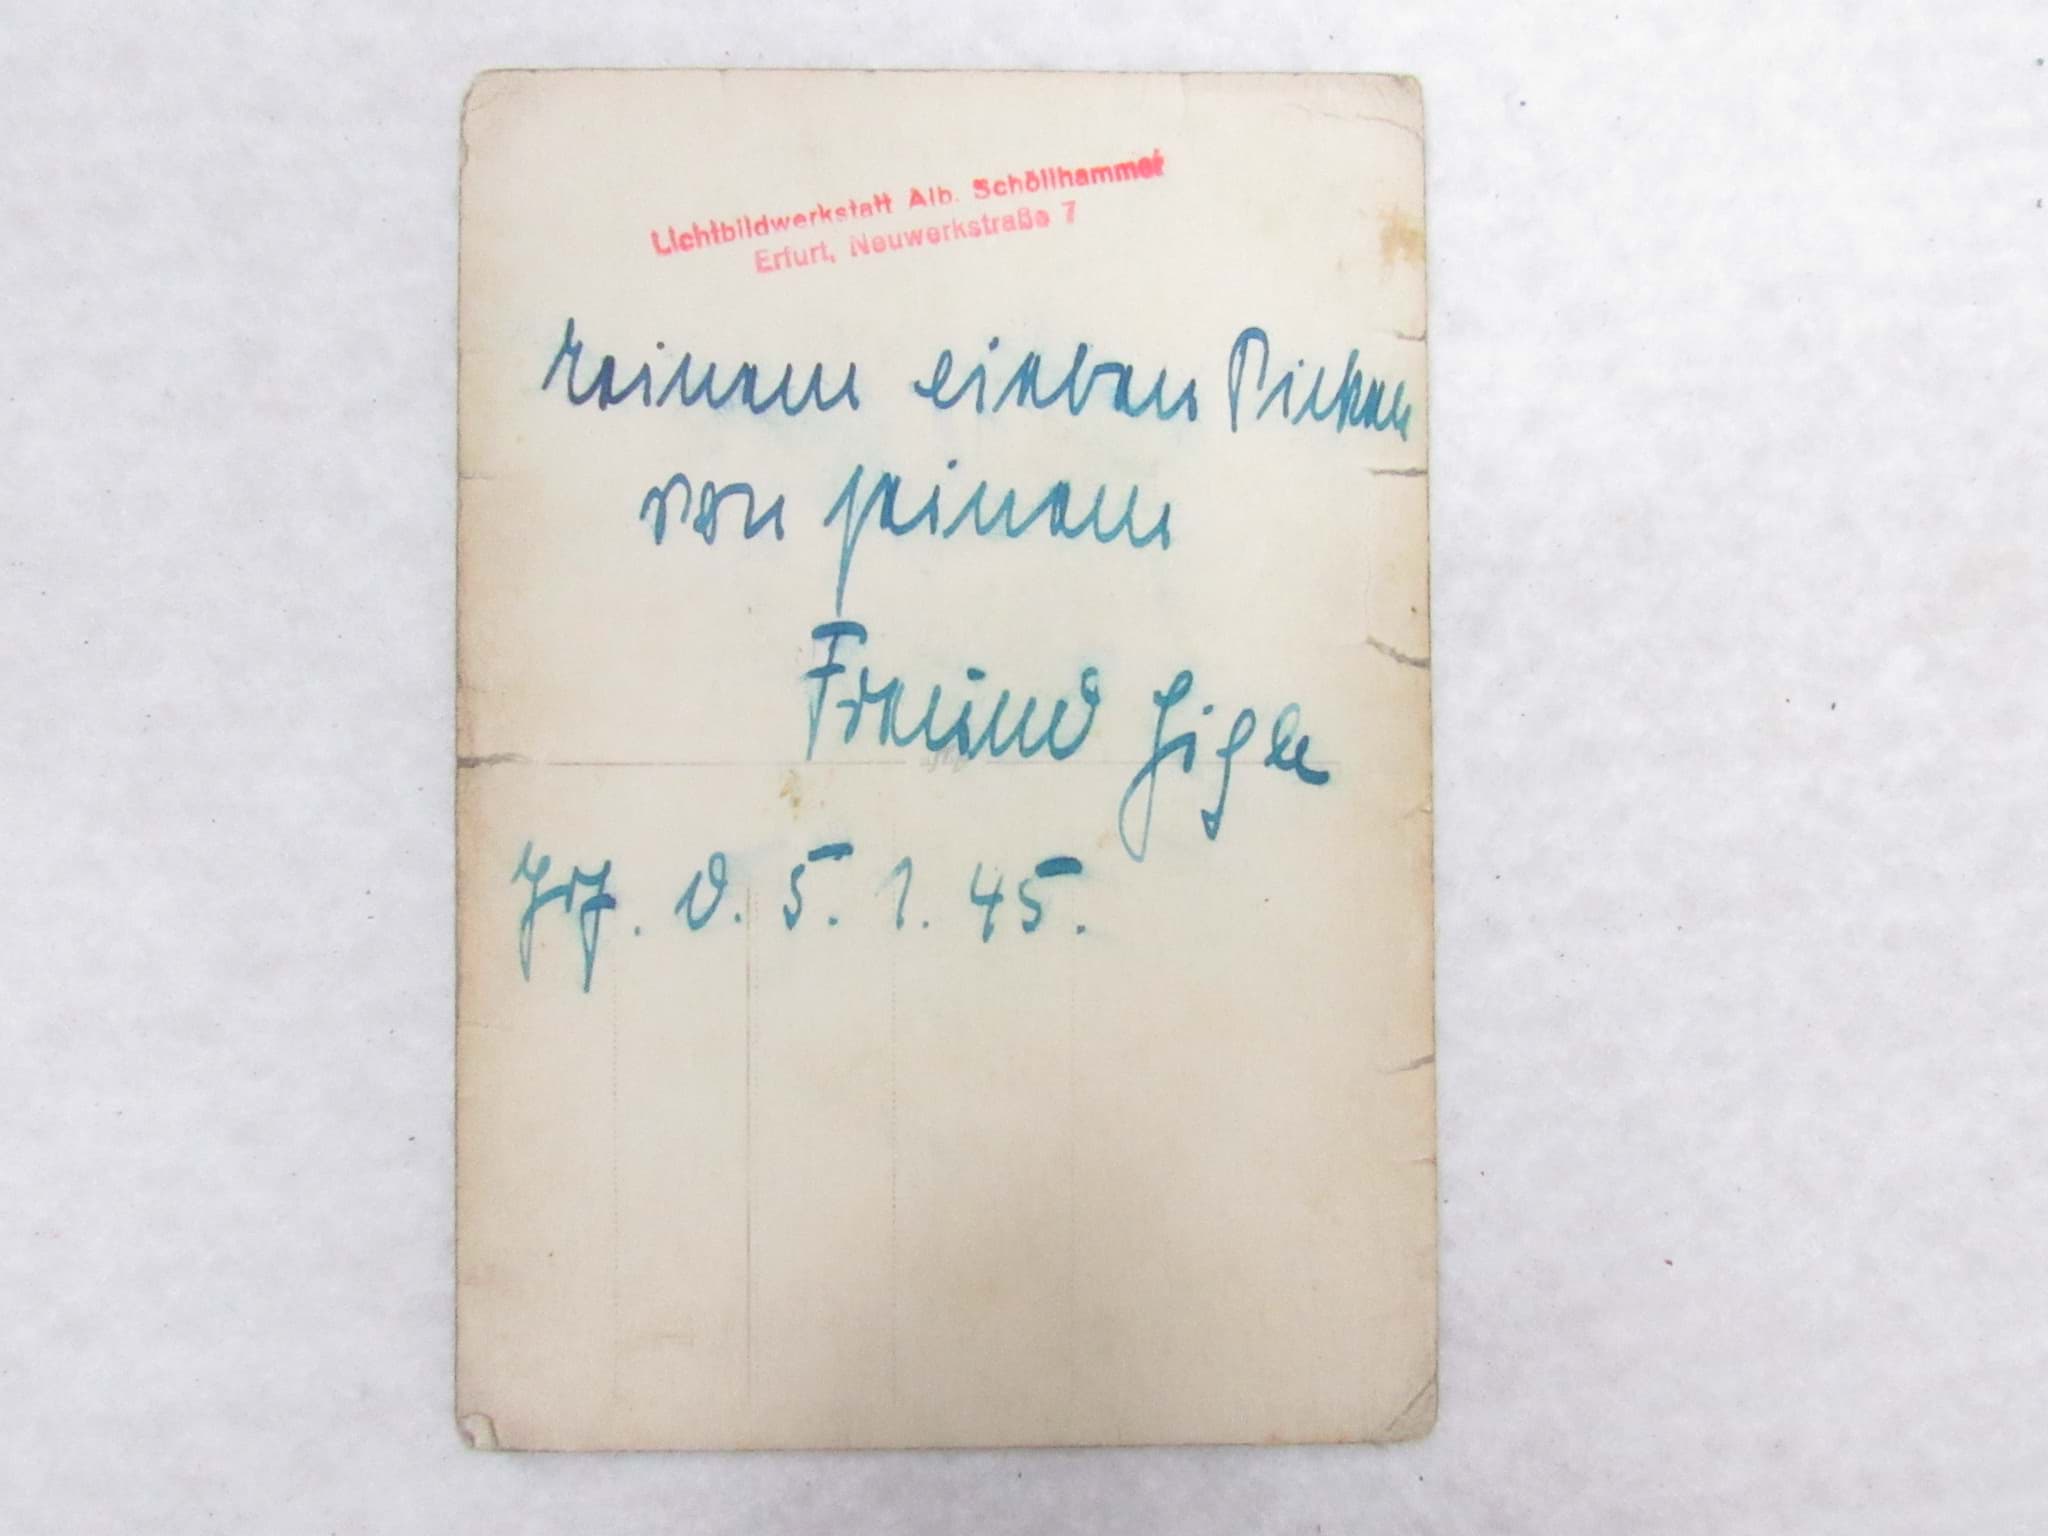 Lichtbildwerkstatt Alb. Schöllhammer
Erfurt, Neuwerkstraße 7
Meinem lieben
von seinem
Freund
d. 5. 1. 45.